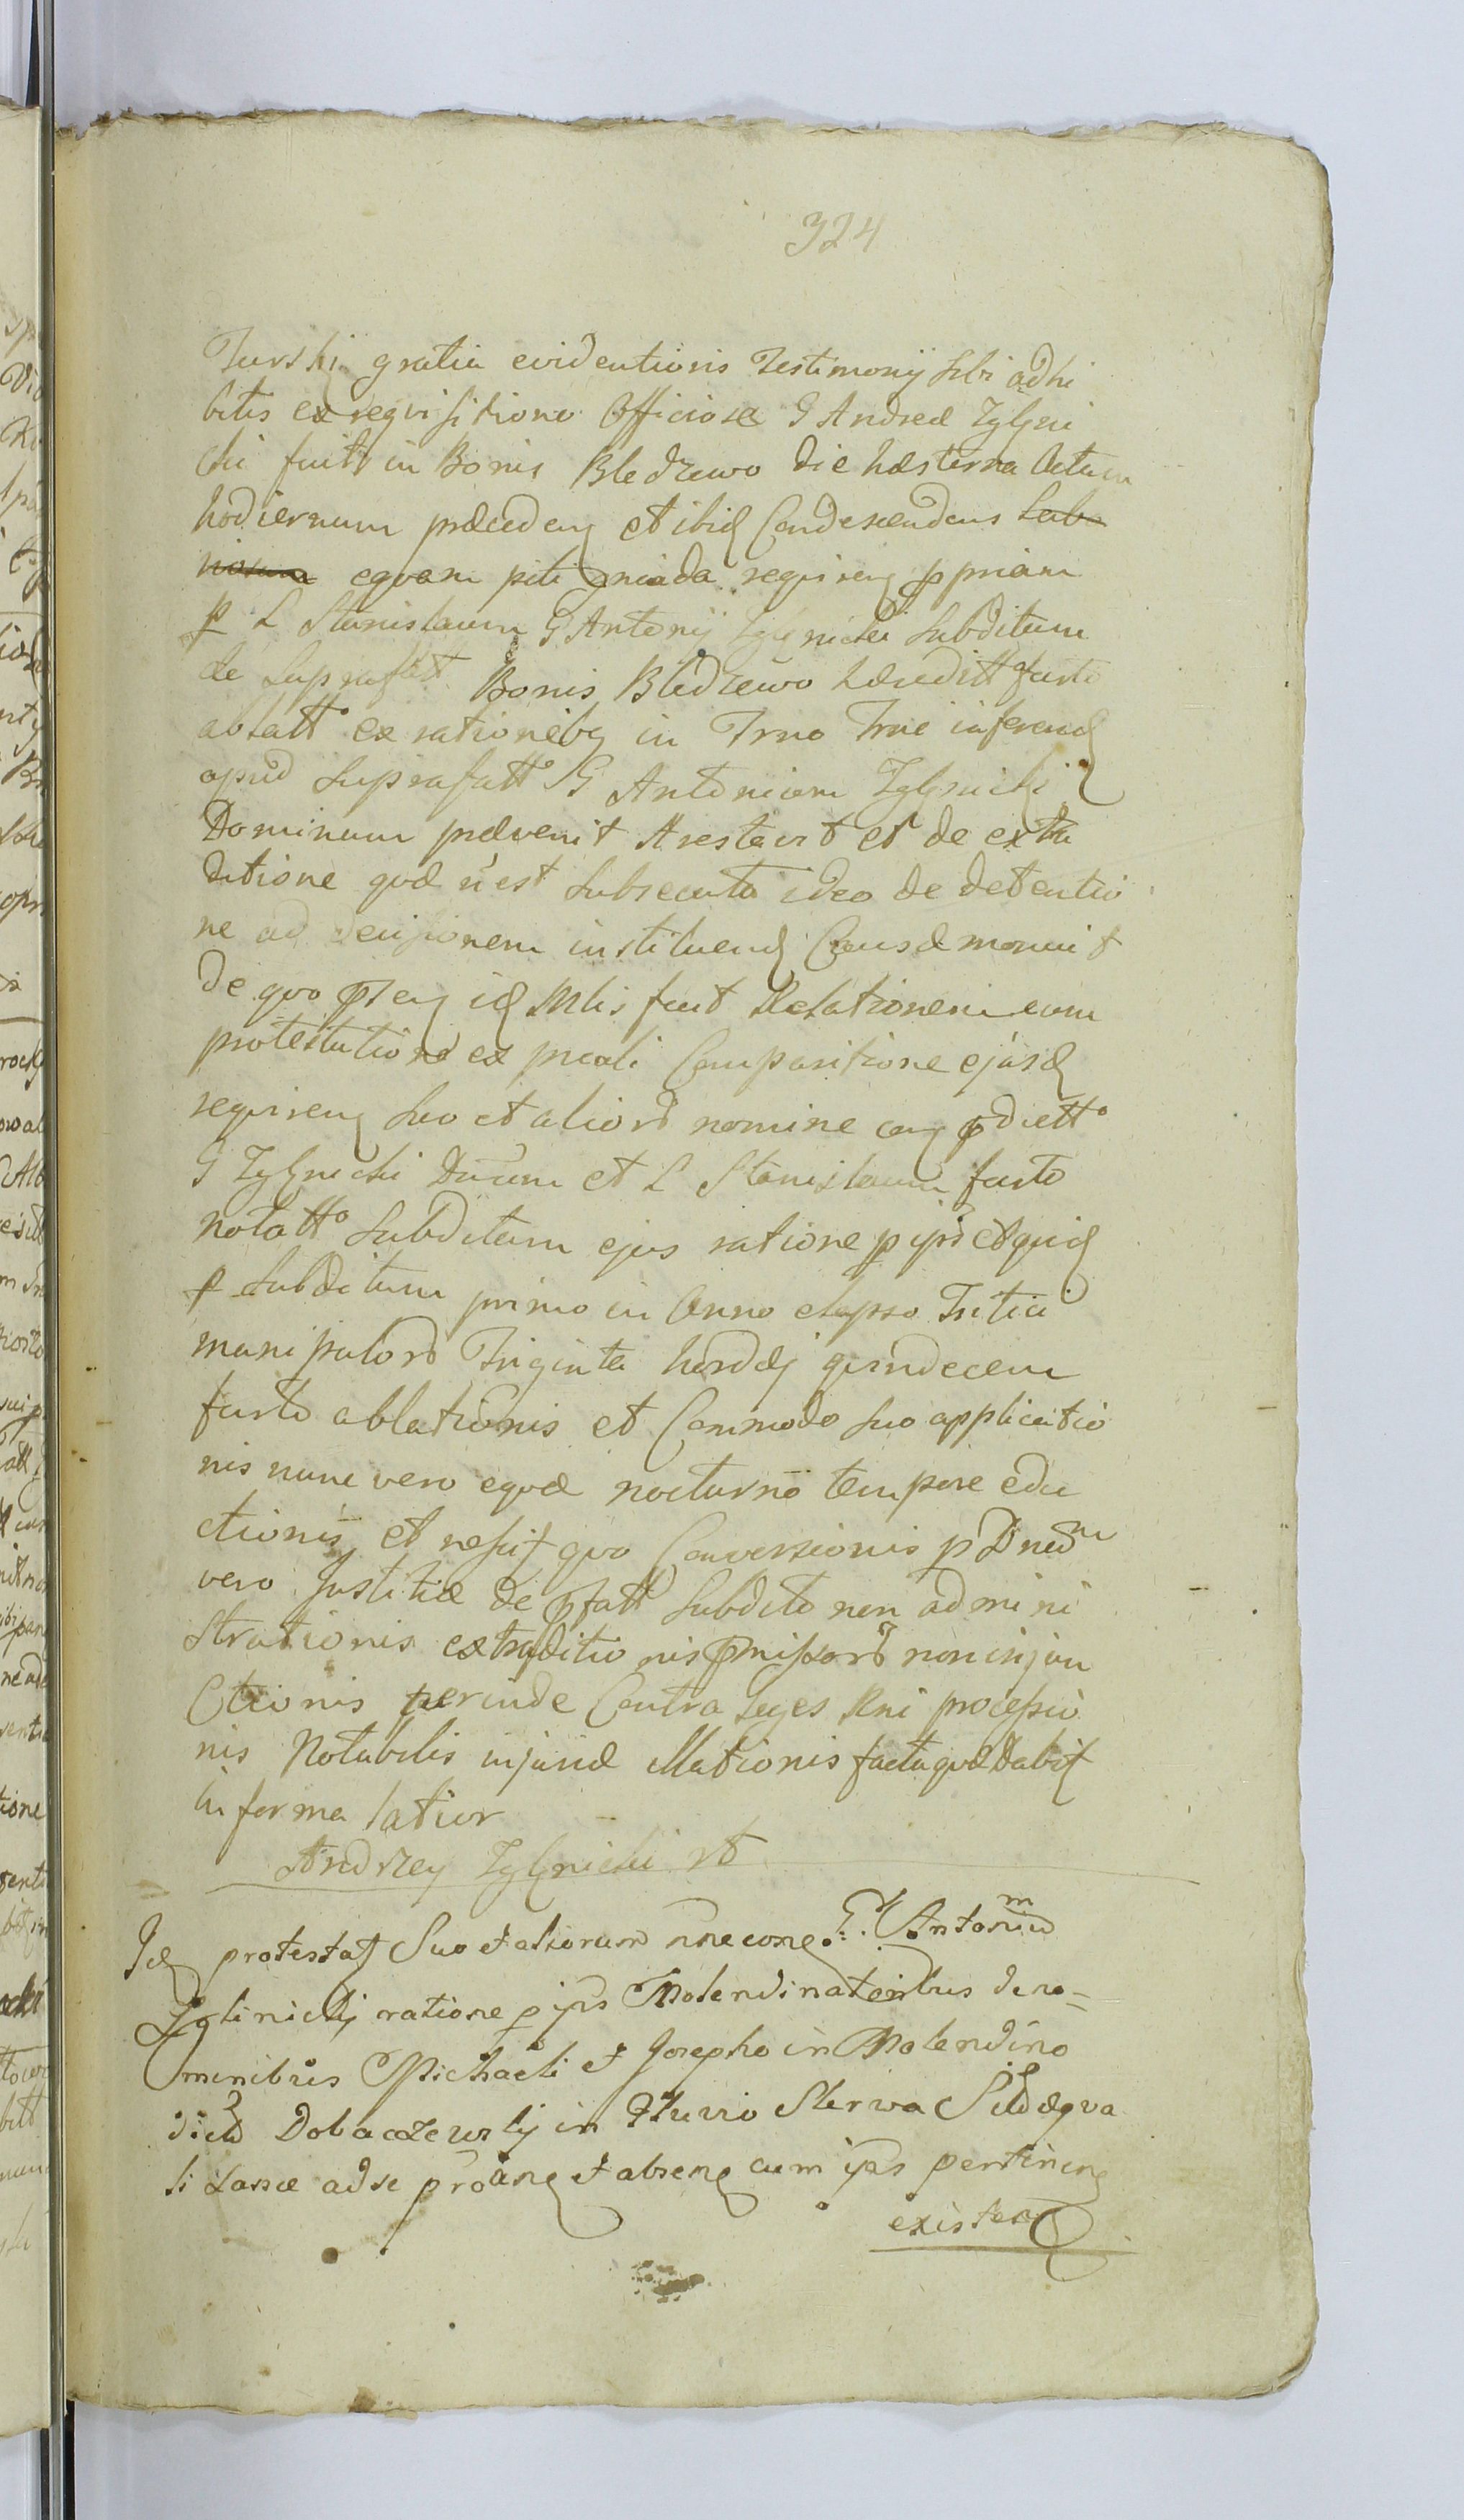 324
Turski gratia evidentioris Testimonij sibi adhi
bitis ex requisitione Officiosa G Andreæ Zglini
cki fuit in Bonis Bledzewo die hæsterna Actum
hodiernum præcedenq et ibid Condescendens
equam pili gniada requirenq ppriam
p L Stanislaum G Antonij Zglinicki Subditum
de suprafat Bonis Bledzewo hæreditt furto
ablatt ex rationibq in Trno Trne inferend
apud suprafatt G Antonium Zglinicki
Dominum prævenit Arestavit et de extra
ditione quæ n est subsecuta ideo de detentio
ne ad decisionem instituend Causæ monuit
De quo pfenq id Mlis fecit Relationem cum
protestatione ex pncali Comparitione ejusd
requirenq suo et aliorū nomine conq pdictto
G Zglinicki Dnum et L Stanislaum furto
notatto Subditum ejus ratione p ipsū etquid
p Subditum primo in Anno elapso Tritici
manipulorū Triginta hordej quindecem
furto ablationis et Commodo suo applicatio
nis nunc vero equæ nocturno tempore edu
ctionis et nescit quo Conversionis p Dnum
vero Justitiæ de pfatt Subdito non admini
strationis extraditionis pmissorū non injun
ctionis perinde Contra Leges Rni processio
nis Notabilis injuriæ Illationis facta quæ Dabit
in forma latior
Andrzey Zglinicki
Id protestat Suo et aliorum nne conq G. Antonium
Zglinickj ratione p ips Molendinatoribus de no=
minibus Michaeli et Josepho in Molendino
dicto Dobaczewskj in Fluvio Skrwa
adse et absenq cum ips pertinenq
existen